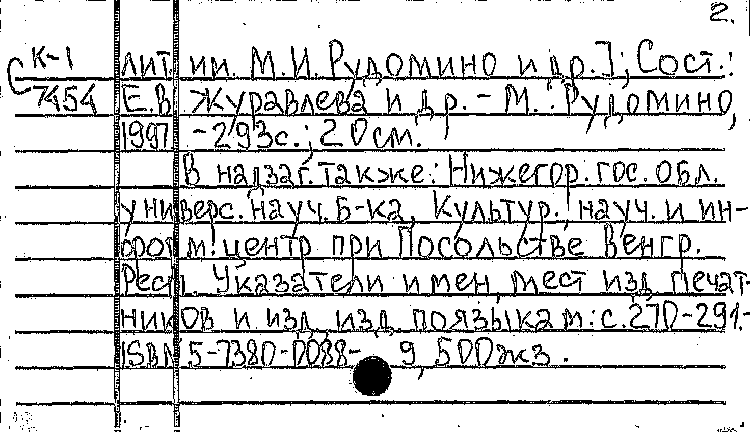 2.
С К-1
7454
лит. им. М.И. Рудомино и др.]; Сост.:
Е.В. Журавлева и др. - М.: Рудомино,
1997. - 293с.; 20см.
В надзаг. также: Нижегор. гос. обл.
универс. науч. б-ка, Культур., науч. и ин-
форм. центр при Посольстве Венгр.
Респ. Указатели имен, мест изд., печат-
ников и изд., изд. по языкам: с.270-291.-
ISBN 5-7380-0088- 9, 500жз.